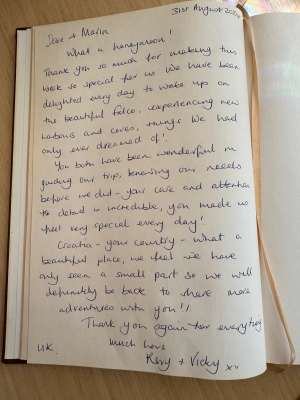 31st August 2024
Jose + Marin
What a honeymoon!
Thank you so much for making this
week so special for us. We have been
delighted every day to wake up on
the beautiful Falco, experiencing new
harbours and coves, things we had
only ever dreamed of!
You both have been wonderful in
guiding our trip, knowing our needs
before we did - your care and attention
to detail is incredible, you made us
feel very special every day!
Croatia - your country - what a
beautiful place, we feel we have
only seen a small part so we will
definitely be back to share more
adventures with you!!
Thank you again for everything
much love
UK. + Vicky xx